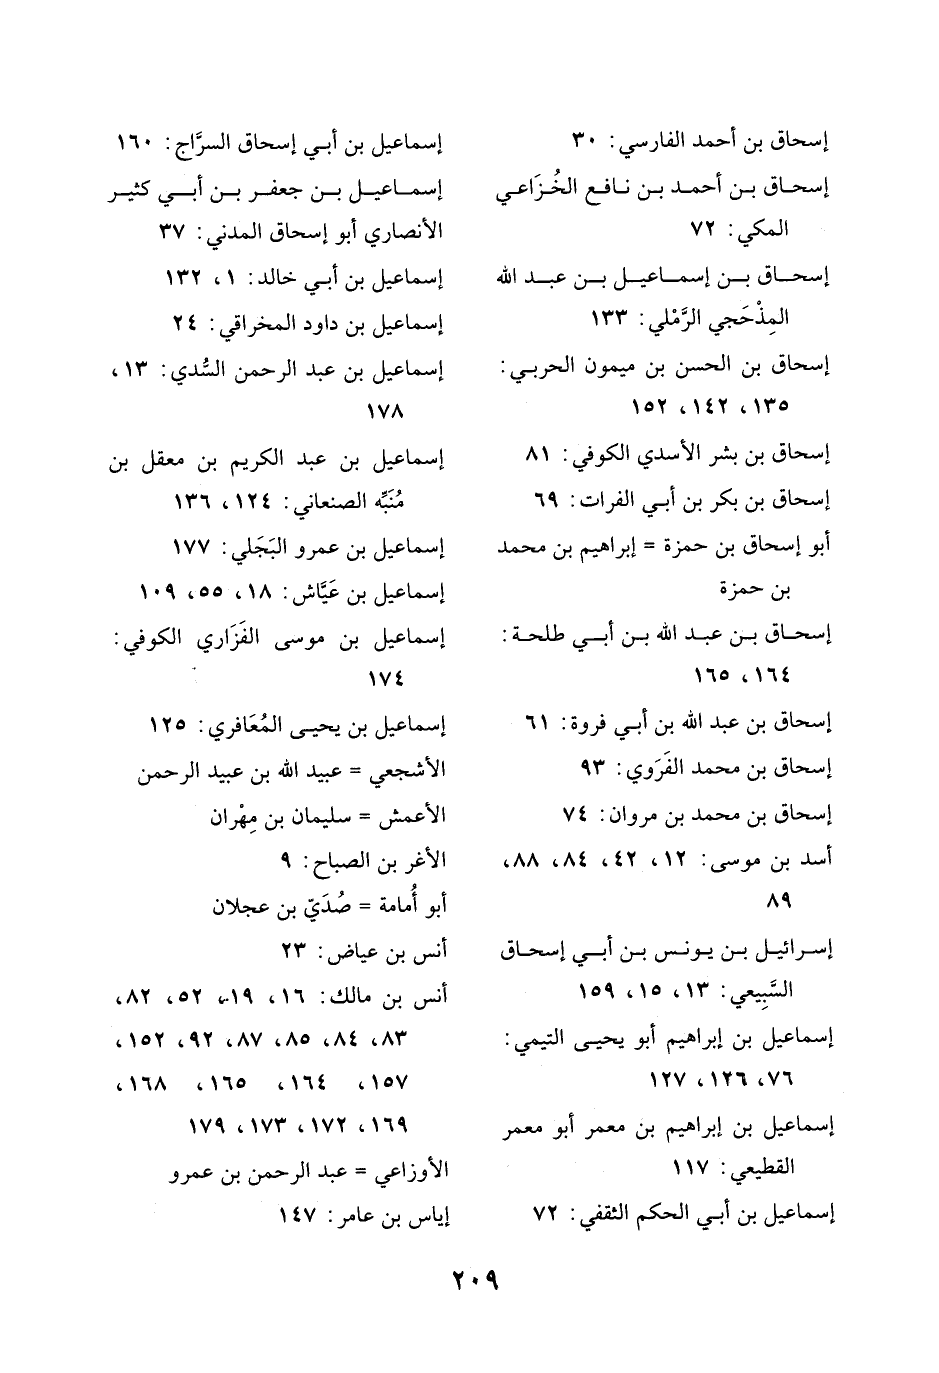 إسحاق بن أحمد الفارسي: ٣٠
إسحاق بن أحمد بن نافع الخُزَاعي
المكي: ٧٢
إسحاق بن إسماعيل بن عبد الله
المِذْحَجي الرَّمْلي: ١٣٣
إسحاق بن الحسن بن ميمون الحربي:
١٣٥، ١٤٢، ١٥٢
إسحاق بن بشر الأسدي الكوفي: ٨١
إسحاق بن بكر بن أبي الفرات: ٦٩
أبو إسحاق بن حمزة = إبراهيم بن محمد
بن حمزة
إسحاق بن عبد الله بن أبي طلحة:
١٦٤، ١٦٥
إسحاق بن عبد الله بن أبي فروة: ٦١
إسحاق بن محمد الفَرَوي: ٩٣
إسحاق بن محمد بن مروان: ٧٤
أسد بن موسى: ١٢، ٤٢، ٨٤، ٨٨،
٨٩
إسرائيل بن يونس بن أبي إسحاق
السَّبِيعي: ١٣، ١٥، ١٥٩
إسماعيل بن إبراهيم أبو يحيى التيمي:
٧٦، ١٢٦، ١٢٧
إسماعيل بن إبراهيم بن معمر أبو معمر
القطيعي: ١١٧
إسماعيل بن أبي الحكم الثقفي: ٧٢
إسماعيل بن أبي إسحاق السرَّاج: ١٦٠
إسماعيل بن جعفر بن أبي كثير
الأنصاري أبو إسحاق المدني: ٣٧
إسماعيل بن أبي خالد: ١، ١٣٢
إسماعيل بن داود المخراقي: ٢٤
إسماعيل بن عبد الرحمن السُّدي: ١٣،
١٧٨
إسماعيل بن عبد الكريم بن معقل بن
مُنَبِّه الصنعاني: ١٢٤، ١٣٦
إسماعيل بن عمرو البَجَلي: ١٧٧
إسماعيل بن عَيَّاش: ١٨، ٥٥، ١٠٩
إسماعيل بن موسى الفَزَاري الكوفي:
١٧٤
إسماعيل بن يحيى المُعَافري: ١٢٥
الأشجعي = عبيد الله بن عبيد الرحمن
الأعمش = سليمان بن مِهْران
الأغر بن الصباح: ٩
أبو أُمامة = صُدَيّ بن عجلان
أنس بن عياض: ٢٣
أنس بن مالك: ١٦، ١٩، ٥٢، ٨٢،
٨٣، ٨٤، ٨٥، ٨٧، ٩٢، ١٥٢،
١٥٧، ١٦٤، ١٦٥، ١٦٨،
١٦٩، ١٧٢، ١٧٣، ١٧٩
الأوزاعي = عبد الرحمن بن عمرو
إياس بن عامر: ١٤٧
٢٠٩